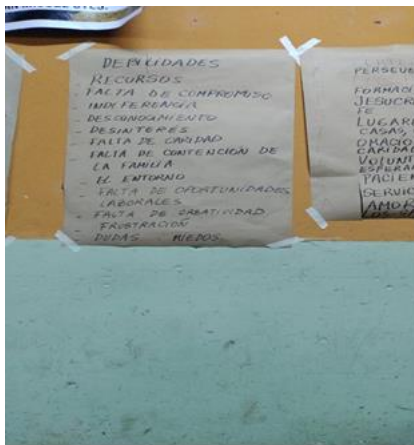 DEBILIDADES
RECURSOS
- FALTA DE COMPROMISO
- INDIFERENCIA
- DESCONOCIMIENTO
- DESINTERES
- FALTA DE CARIDAD
- FALTA DE CONTENCIÓN DE
LA FAMILIA
- EL ENTORNO
- FALTA DE OPORTUNIDADES
LABORALES
- FALTA DE CREATIVIDAD
- FRUSTRACIÓN
- DUDAS MIEDOS
PERSEVE
FORMACI
JESUCR
FE
LUGAR
CASAS,
ORACIO
CARIDA
VOLUN
ESPERA
PACIEN
SERVIC
AMOR